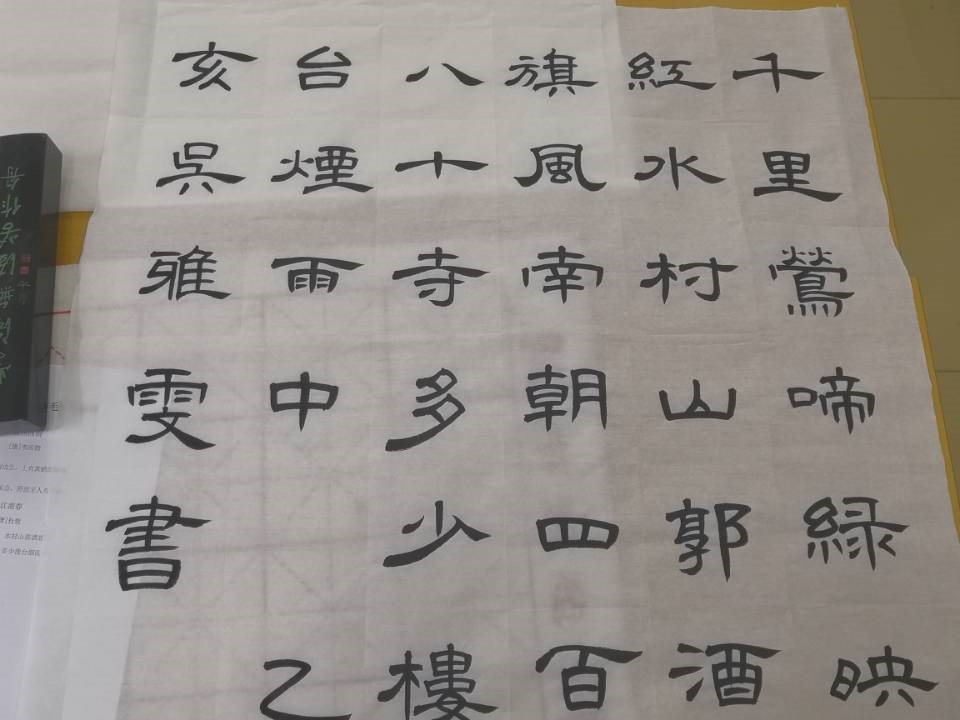 千里鶯啼緑映
紅水村山郭酒
旗風南朝四百
八十寺多少樓
台煙雨中乙
亥吳雅雯書
江南春